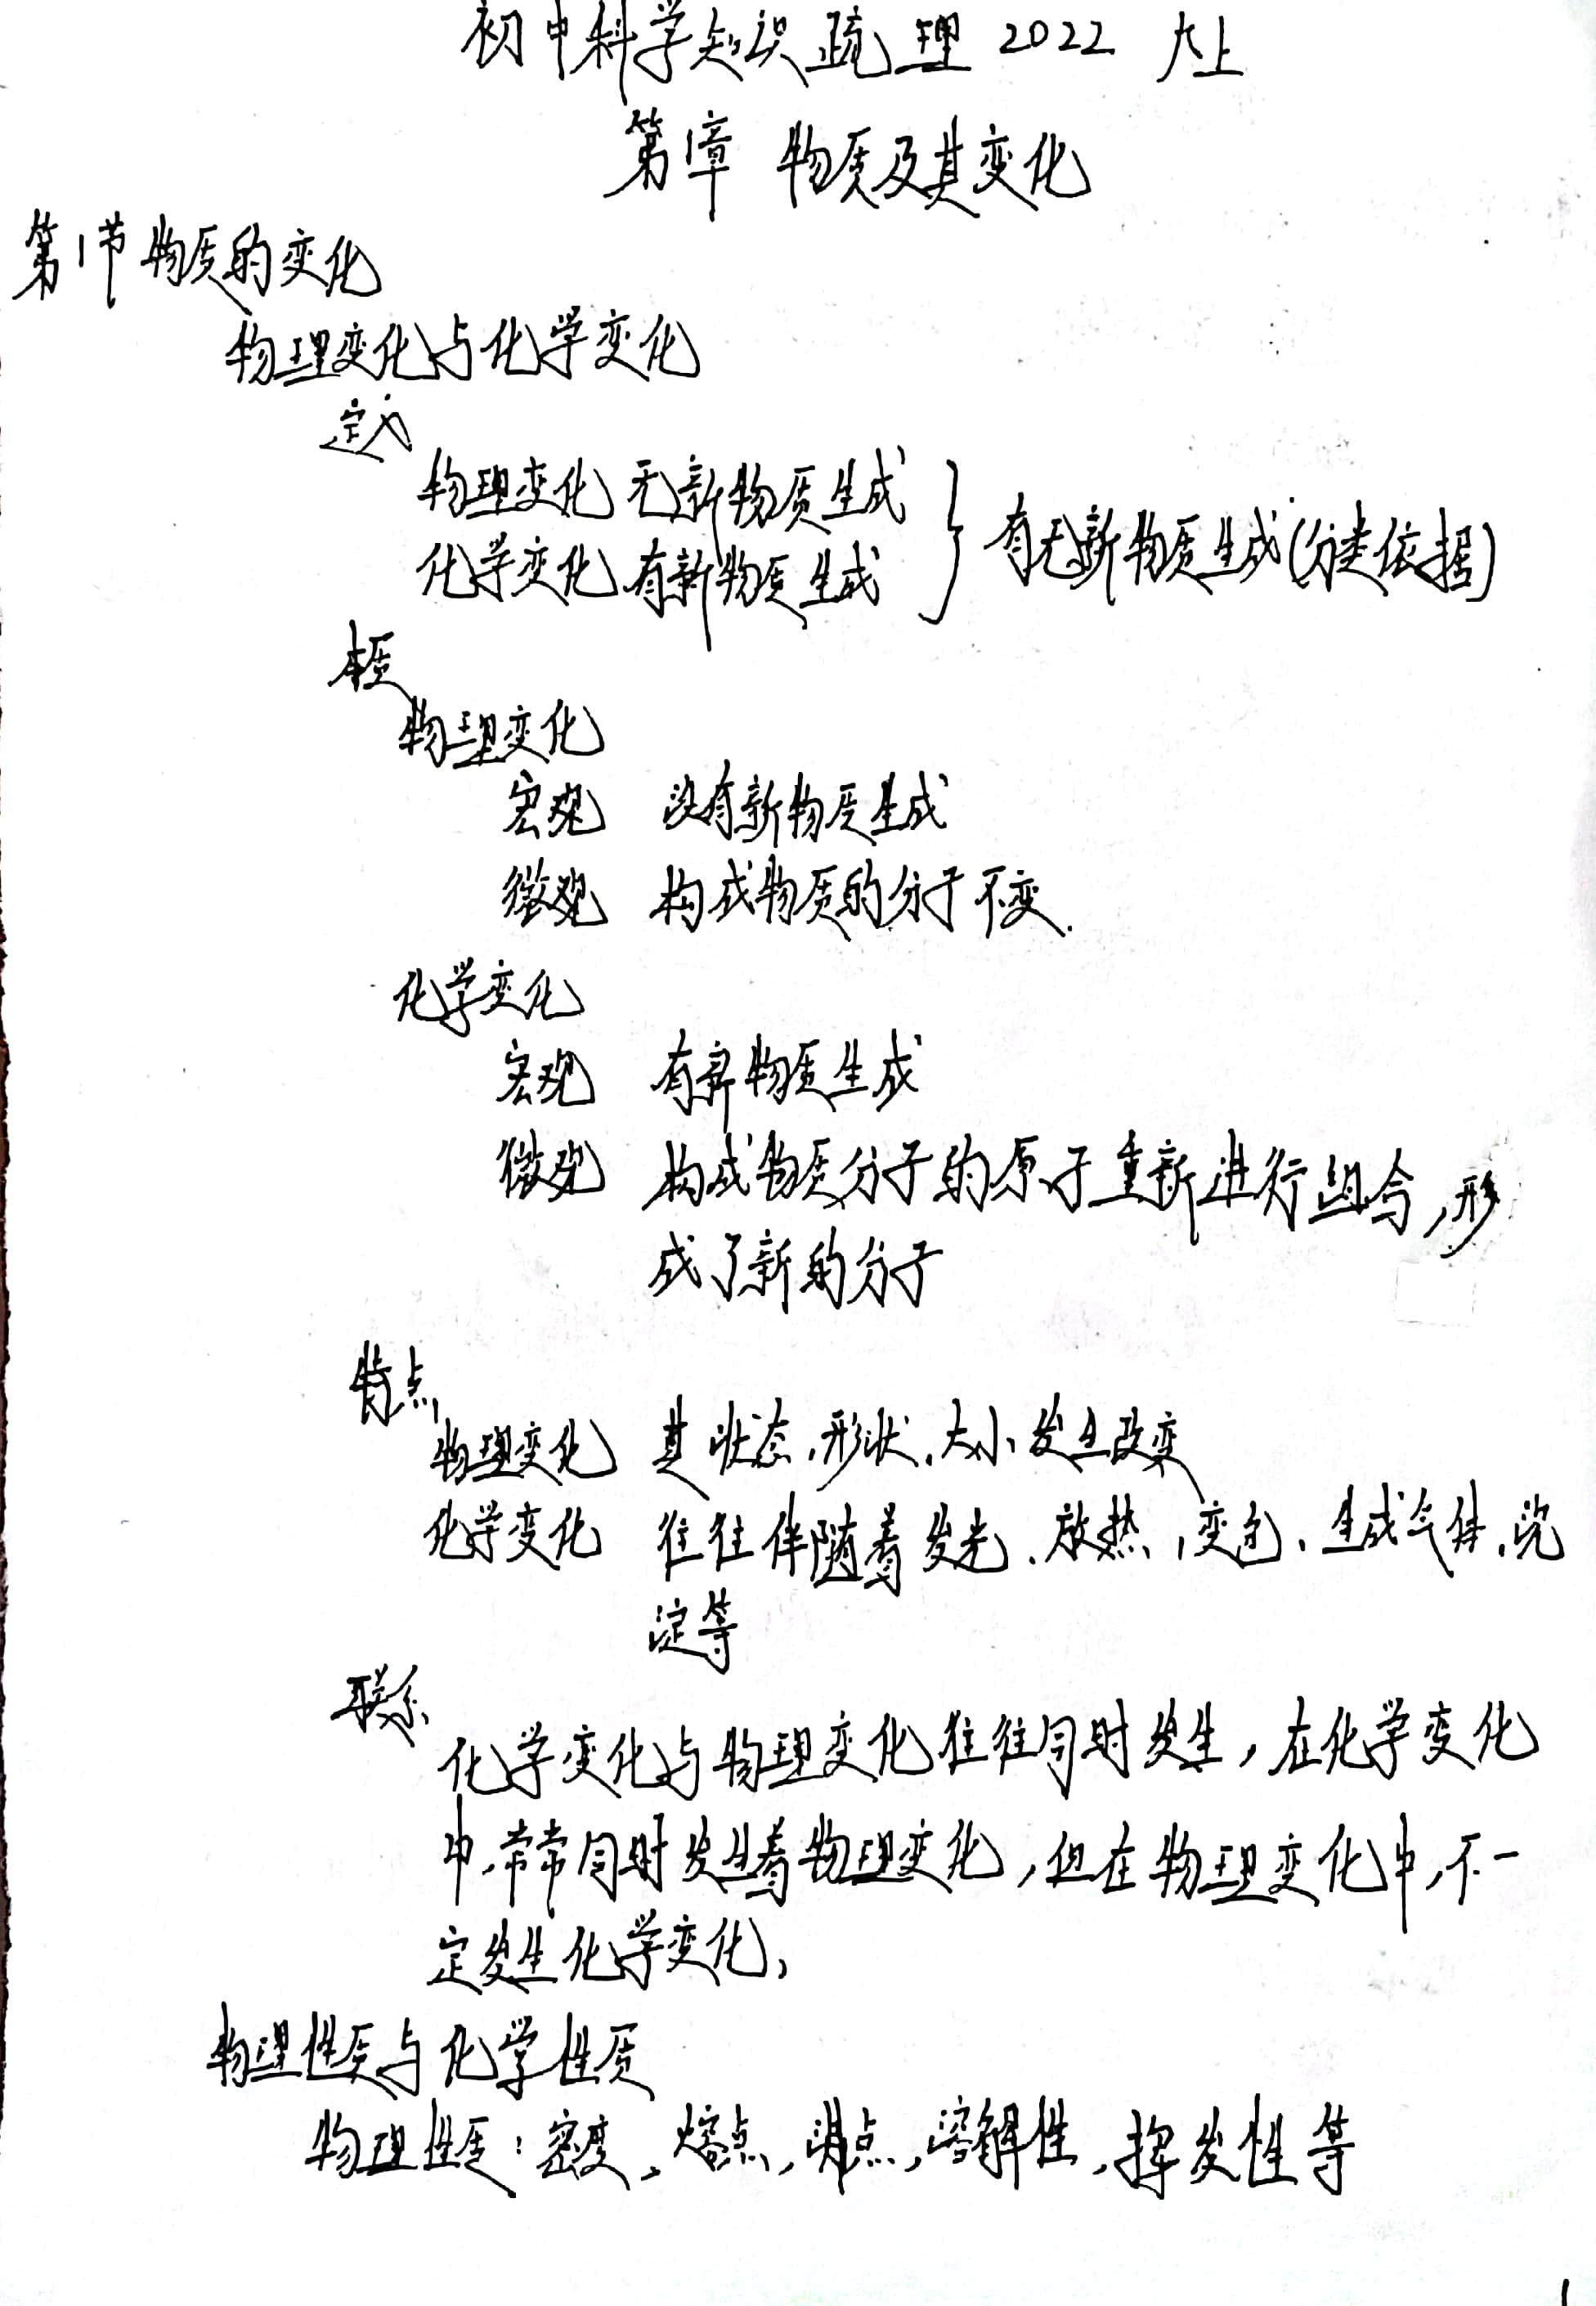 初中科学知识疏理 2022 九上
第1章 物质及其变化
第1节 物质的变化
物理变化与化学变化
定义
物理变化 无新物质生成
化学变化 有新物质生成 } 有无新物质生成(分类依据)
本质
物理变化
宏观 没有新物质生成
微观 构成物质的分子不变.
化学变化
宏观 有新物质生成
微观 构成物质分子的原子重新进行组合,形
成了新的分子
特点
物理变化 其状态、形状、大小发生改变
化学变化 往往伴随着发光、放热、变色、生成气体、沉
淀等
联系
化学变化与物理变化往往同时发生,在化学变化
中,常常同时发生着物理变化,但在物理变化中,不一
定发生化学变化,
物理性质与化学性质
物理性质:密度、熔点、沸点、溶解性、挥发性等
1